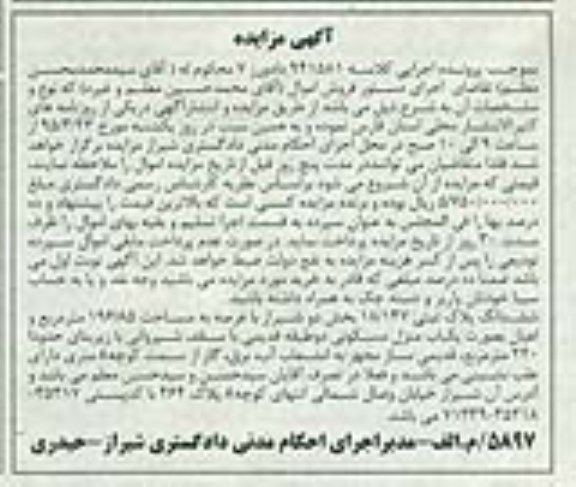 آگهی مزایده
بموجب پرونده اجرایی کلاسه ۹۴۱۵۸۱ دادورز ۷ محکوم له ( آقای سیدمحمدمحسن
معلم) تقاضای اجرای دستور فروش اموال (آقای محمدحسین معلم و غیره) که نوع و
مشخصات آن به شرح ذیل می باشد از طریق مزایده و انتشار آگهی در یکی از روزنامه های
کثیرالانتشار محلی استان فارس نموده و به همین سبت در روز یکشنبه مورخ ۹۵/۳/۲۳ از
ساعت ۹ الی ۱۰ صبح در محل اجرای احکام مدنی دادگستری شیراز مزایده برگزار خواهد
شد فلذا متقاضیان می توانند در مدت پنج روز قبل از تاریخ مزایده اموال را ملاحظه نمایند.
قیمتی که مزایده از آن شروع می شود براساس نظریه کارشناس رسمی دادگستری مبلغ
ریال بوده و برنده مزایده کسی است که بالاترین قیمت را پیشنهاد و ده
درصد بها را فی المجلس به عنوان سپرده به قسمت اجرا تسلیم و بقیه بهای اموال را ظرف
مدت ۳۰ روز از تاریخ مزایده پرداخت نماید در صورت عدم پرداخت مابقی اموال سپرده
تودیعی را پس از کسر هزینه مزایده به نفع دولت ضبط خواهد شد. این آگهی نوبت اول می
باشد ضمنا ده درصد مبلغی که قادر به خرید مورد مزایده می باشید وجه نقد و یا به حساب
سیبا خودتان واریز و دسته چک به همراه داشته باشید.
ششدانگ پلاک ثبتی ۱۸/۱۳۷ بخش دو شیراز با عرصه به مساحت ۱۹۶/۸۵ مترمربع و
اعیان بصورت یکباب منزل مسکونی دوطبقه قدیمی با سقف شیروانی با زیربنای حدودا
۲۲۰ مترمربع، قدیمی ساز مجهز به انشعاب آب، برق، گاز از سمت کوچه ۸ متری دارای
عقب نشینی می باشد و فعلا در تصرف آقایان سیدحسین و سیدحسن معلم می باشد و
آدرس آن شیراز خیابان وصال شمالی انتهای کوچه ۸ پلاک ۲۶۴ با کدپستی
می باشد.
۵۸۹۷/م.الف-مدیراجرای احکام مدنی دادگستری شیراز-حیدری